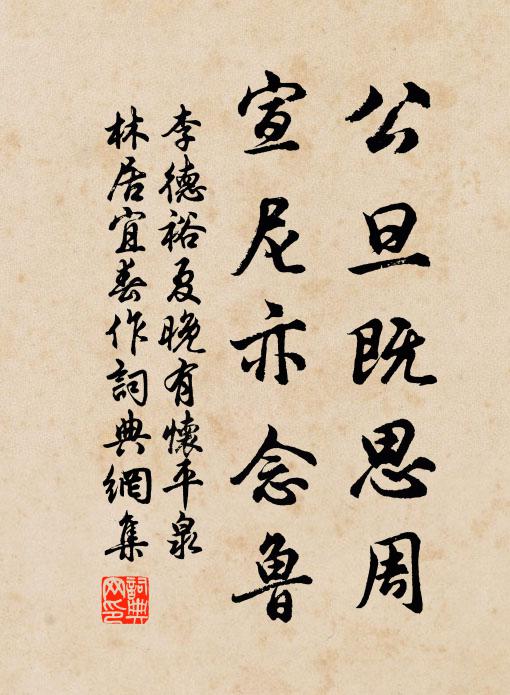 公旦既思周
宣尼亦念魯
李德裕夏晚有懷平泉
林居宜春作詞典網集
詞典
网印